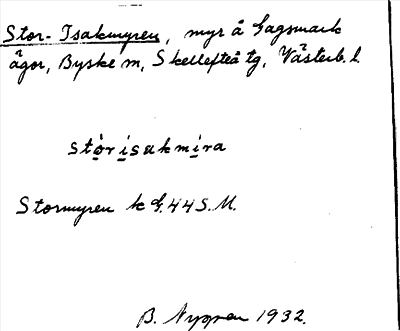 Stor-Isakmyren, myr å Gagsmark
ägor, Byske sn, Skellefteå tg, Västerb. l.
stòrisakmira
Stormyren k G. 44 S. M.
B. Nygren 1932.